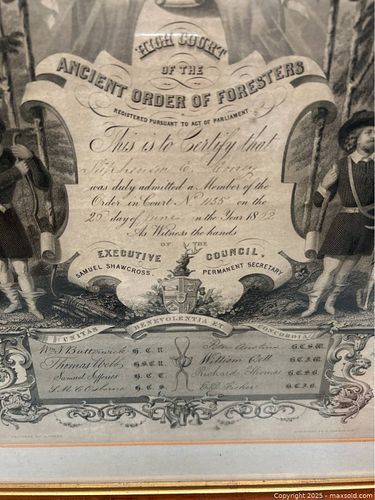 HIGH COURT
OF THE
ANCIENT ORDER OF FORESTERS
REGISTERED PURSUANT TO ACT OF PARLIAMENT
This is to Certify that
was duly admitted a Member of the
Order in Court No 1455 on the
day of June in the Year 18
As Witness the hands
OF THE
EXECUTIVE COUNCIL,
SAMUEL SHAWCROSS, PERMANENT SECRETARY.
UNITAS BENEVOLENTIA ET CONCORDIA
H. C. R. G.C.S.W.
Thomas H.S.C.R. William G.C.J.W.
Samuel H. C. T. Richard Thomas G.C.S.B.
H. C. S. Fisher G.C.J.B.
© 2025 - maxsold.com